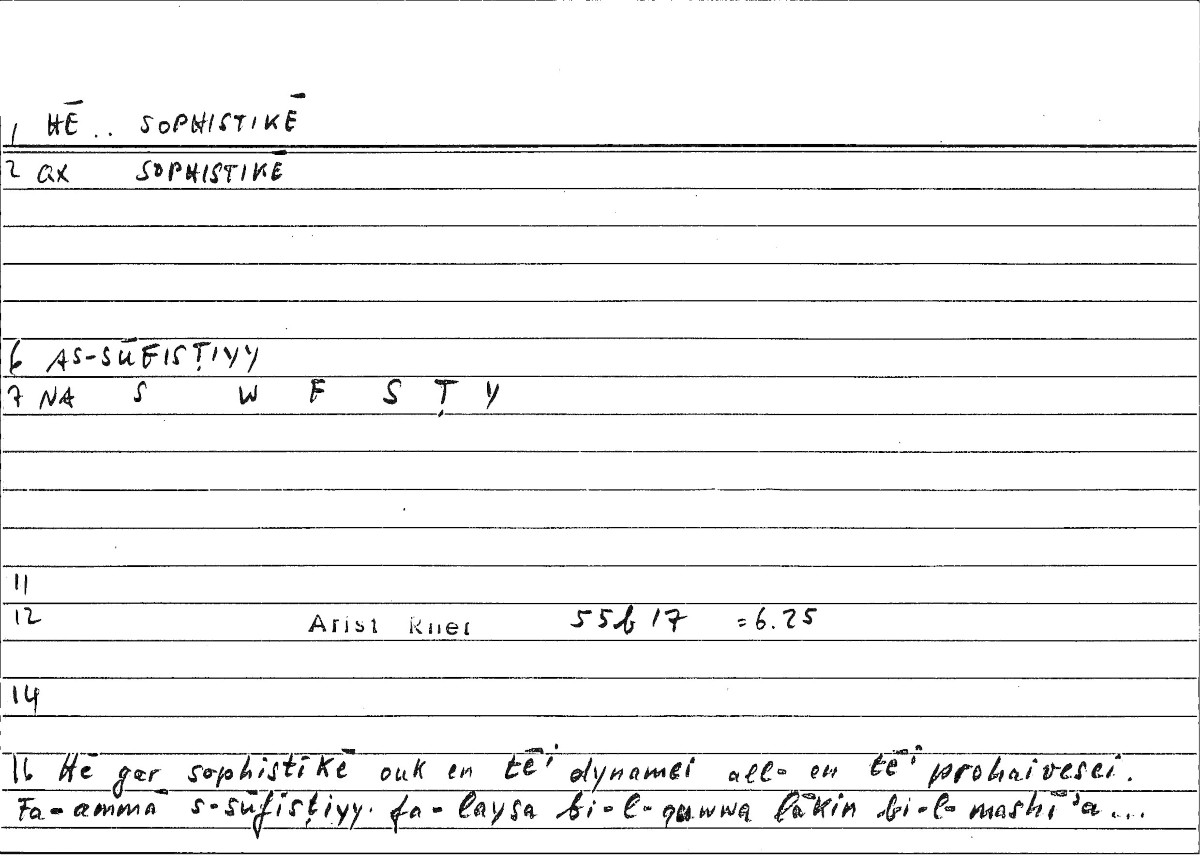 1 HĒ .. SOPHISTIKĒ
2 ax SOPHISTIKĒ
6 AS-SŪFISṬIYY
7 NA S W F S Ṭ Y
11
12 Arist Rhet 55b17 =6.25
14
16 Hē gar sophistikē ouk en tēi dynamei all- en tēi prohairesei.
Fa-ammā s-sūfisṭiyy. fa-laysa bi-l-quwwa lākin bi-l-mashī'a...